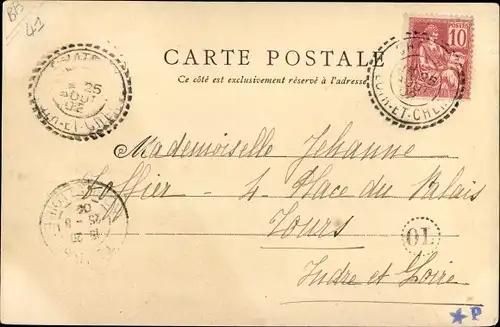 BB
41
CARTE POSTALE
Ce côté est exclusivement réservé à l'adresse
10
25
AOUT
02
LOIR-ET-CHER
LOIR-ET-CHER
Mademoiselle Jehanne
Loffier - 4 Place du Palais
Tours
Indre et Loire
OL
★P